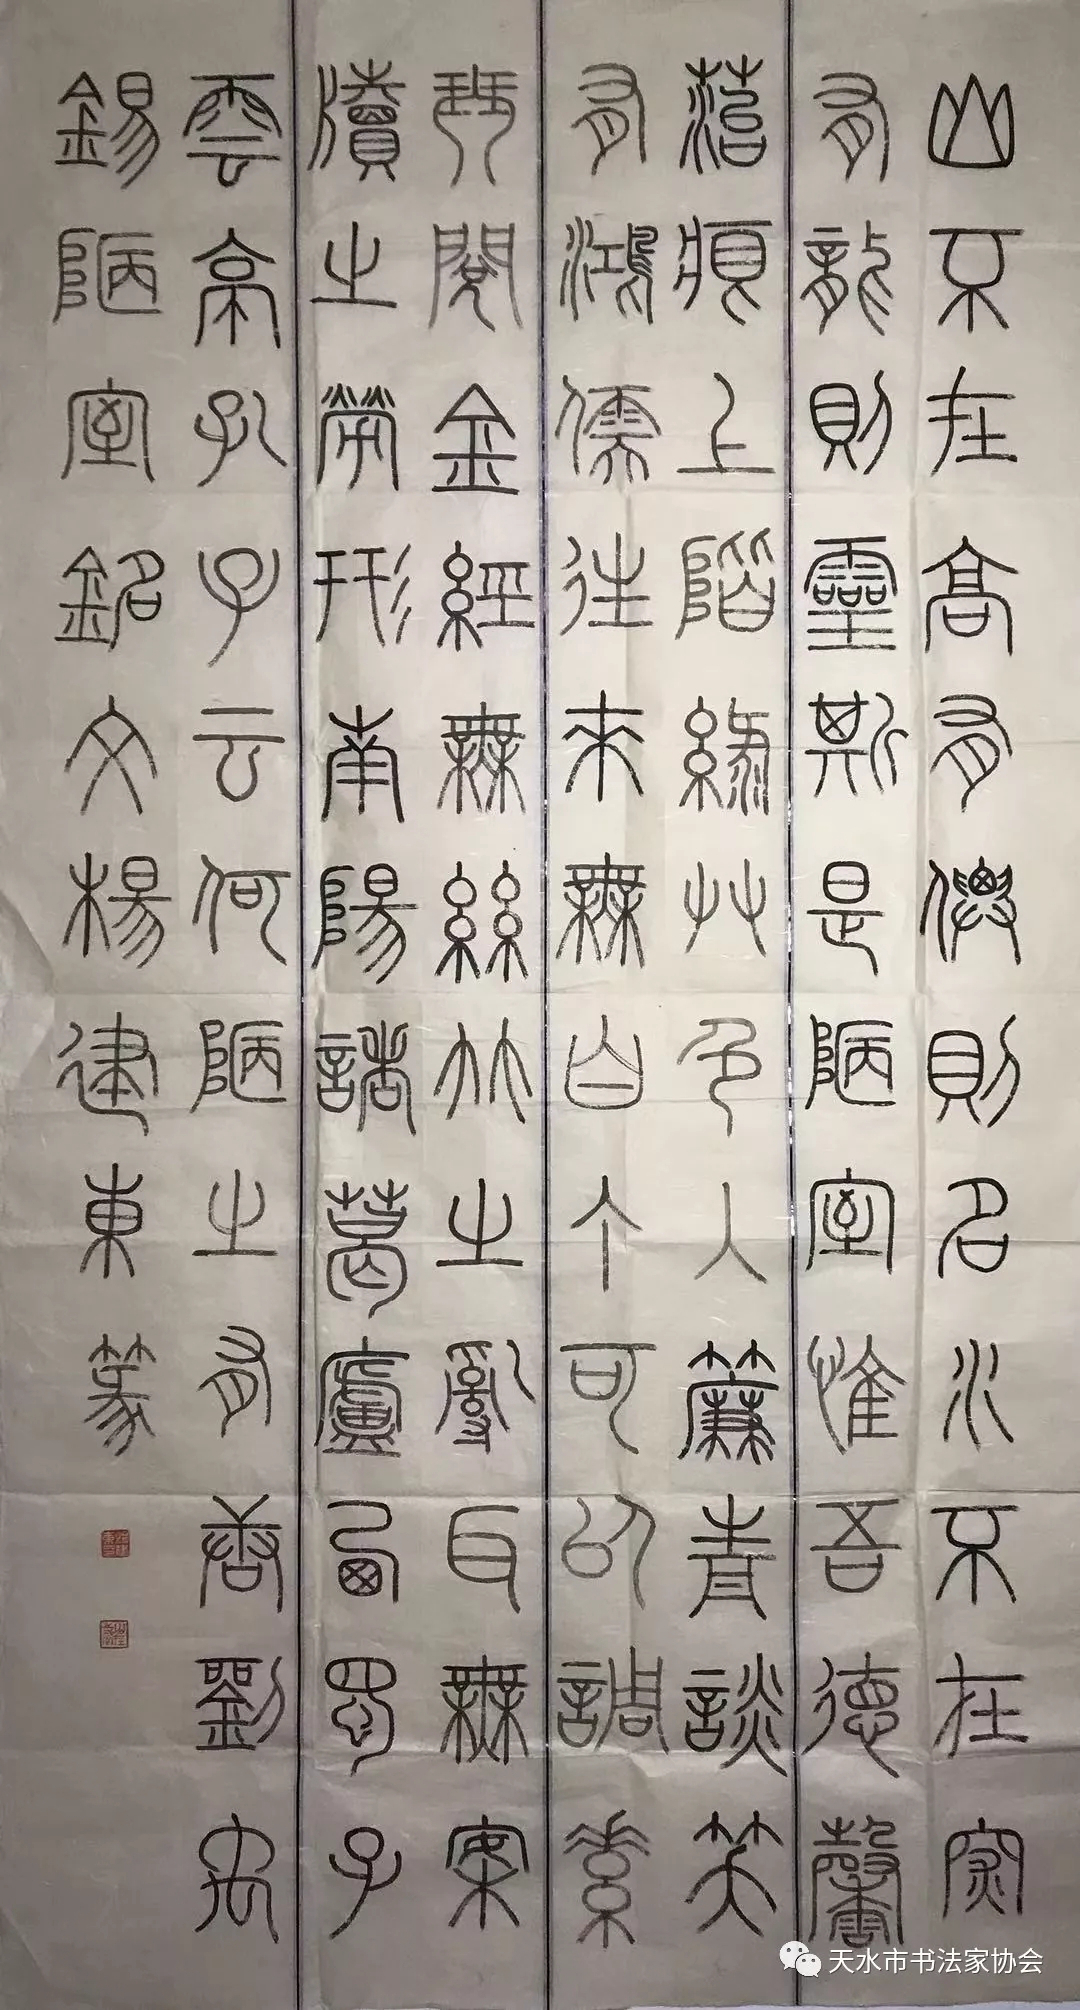 山不在高有僊則名水不在深
有龍則靈斯是陋室惟吾德馨
菭痕上階綠艸色入簾青談笑
有鴻儒往來無白丁可以調素
琴閱金經無絲竹之亂耳無案
牘之勞形南陽諸葛廬西蜀子
雲亭孔子云何陋之有唐劉禹
錫陋室銘文楊建東篆
天水市书法家协会